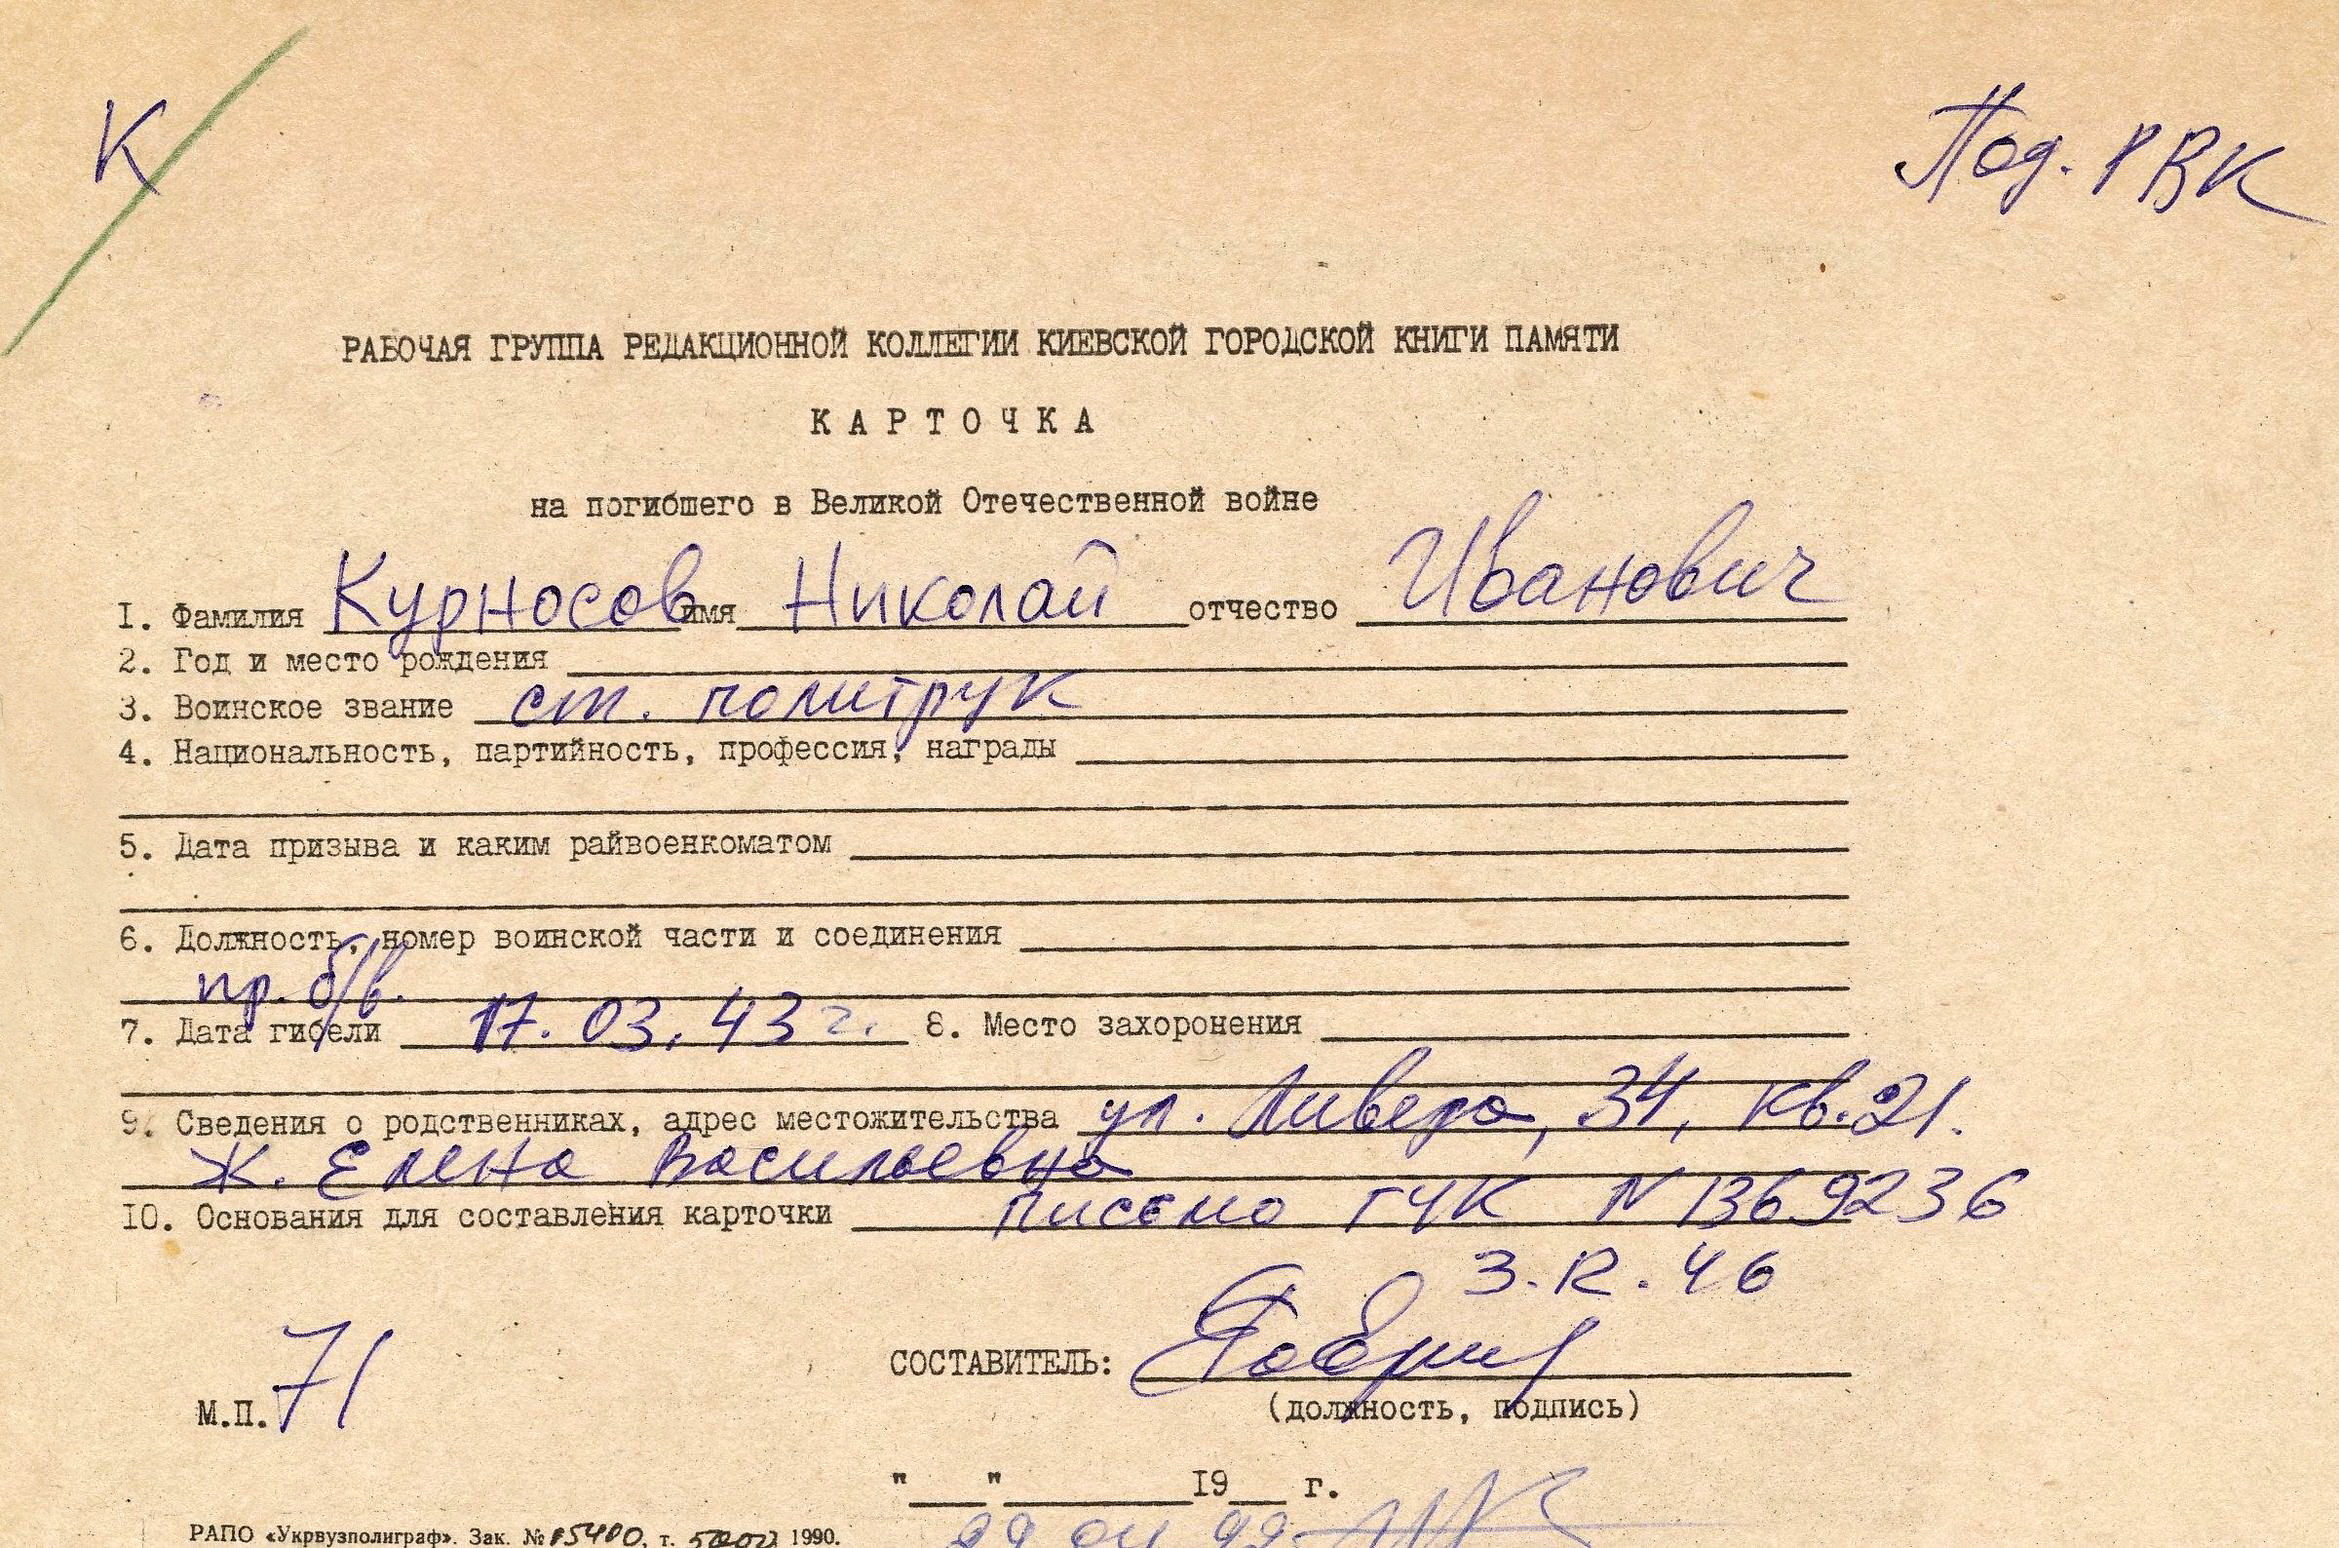 К
Под. РВК
РАБОЧАЯ ГРУППА РЕДАКЦИОННОЙ КОЛЛЕГИИ КИЕВСКОЙ ГОРОДСКОЙ КНИГИ ПАМЯТИ
КАРТОЧКА
на погибшего в Великой Отечественной войне
1. Фамилия Курносов имя Николай отчество Иванович
2. Год и место рождения
3. Воинское звание ст. политрук
4. Национальность, партийность, профессия, награды
5. Дата призыва и каким райвоенкоматом
6. Должность, номер воинской части и соединения
пр. б/в.
7. Дата гибели 17.03.43 г. 8. Место захоронения
9. Сведения о родственниках, адрес местожительства ул. Ливера, 34, кв. 21.
Ж. Елена Васильевна
10. Основания для составления карточки письмо ГУК N 1369236
3.12.46
СОСТАВИТЕЛЬ:
(должность, подпись)
М.П. 71
" " 19 г.
РАПО «Укрвузполиграф». Зак. № 5400, т. 5000 1990.